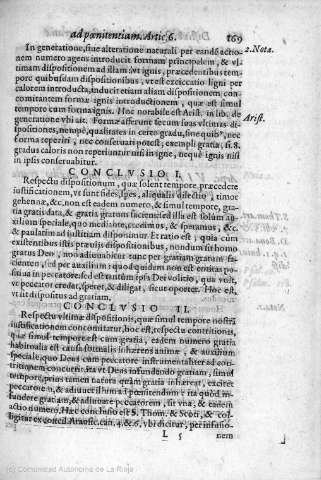 ad pœnitentiam. Artic. 6. 169
In generatione, siue alteratione naturali per eandē actio-
nem numero agens introducit formam principalem, & vl-
timam dispositionem ad illam: vt ignis, præcedentibus tem-
pore quibusdam dispositionibus, vt est exiccatio ligni per
calorem introducta, inducit etiam aliam dispositionem, con-
comitantem formæ ignis introductionem, quæ est simul
tempore cum forma ignis. Hoc notabile est Arist. in lib. de
generatione vbi ait. Formæ afferunt secum suas vltimas di-
spositiones, nempe, qualitates in certo gradu, sine quib°, nec
forma reperiri, nec conseruari potest; exempli gratia, si. 8.
gradus caloris non reperiuntur
in ipsis conseruabitur.
2. Nota.
Arist.
CONCLVSIO I.
Respectu dispositionum, quæ solent tempore præcedere
iustificationem, vt sunt fides, spes, aliqualis dilectio, timor
gehennæ, &c. non est eadem numero, & simul tempore, gra-
tia gratis data, & gratia gratum faciens: sed illa est solum au-
xilium speciale, quo mediante, credimus, & speramus, &c.
& paulatim ad iustitiam disponimur. Et ratio est, quia cum
existentibus istis præuijs dispositionibus, nondum sit homo
gratus Deo, non adiuuabitur tunc per gratiam gratum fa-
cientem, sed per auxilium
peccator credat, speret, & diligat, sicut oportet. Hoc est,
vt sit dispositus ad gratiam.
CONCLVSIO II.
Respectu vltimæ dispositionis, quæ simul tempore nostrā
iustificationem concomitatur, hoc est, respectu contritionis,
quæ simul tempore est cum gratia, eadem numero gratia
habitualis est causa formalis inhærens animæ, & auxilium
speciale, quo Deus cum peccatore
tritionem concurrit. Ita vt Deus infundendo gratiam, simul
tempore, prius tamen natura quàm gratia inhæreat, excitet
peccatorem, & adiuuet illum ad pœnitendum: ita quòd in-
fundere gratiam, & adiuuare peccatorem, sit vna, & eadem
actio numero. Hæc conclusio est S. Thom. & Scoti, & col-
ligitur ex concil. Arausic. can. 4. & 6. vbi dicitur, per infusio-
L 5 nem
(c) Comunidad Autónoma de La Rioja